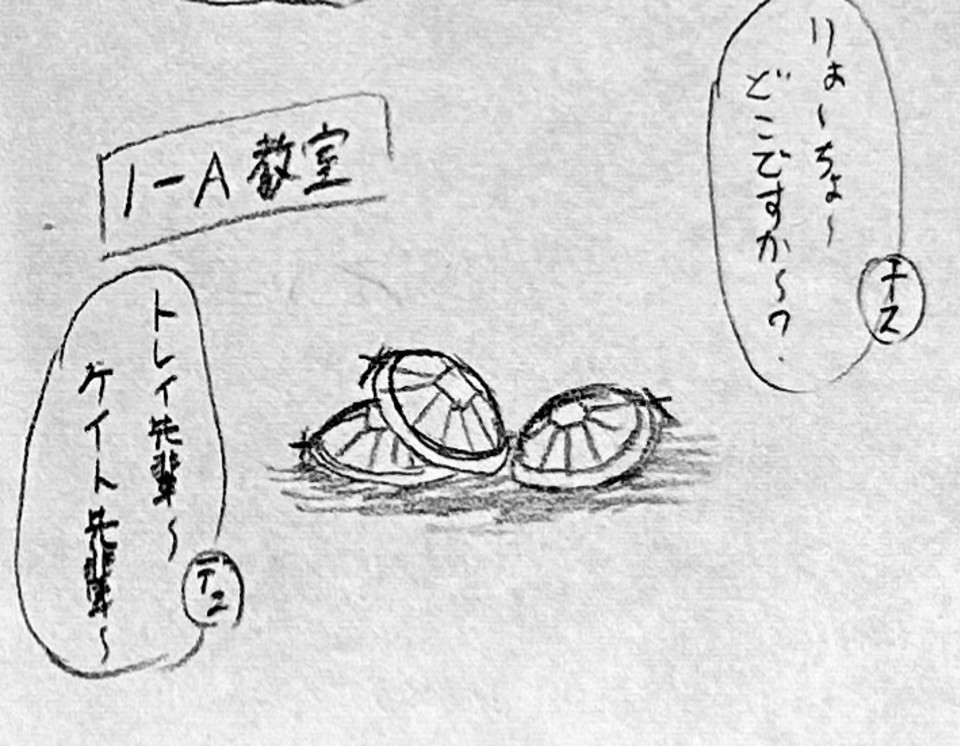 りょ～ちょ～
どこですか～?
1-A 教室
トレイ先輩～
ケイト先輩～